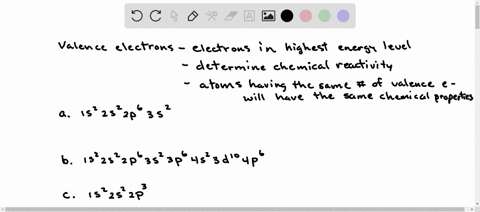 Valence electrons - electrons in highest energy level
- determine chemical reactivity
- atoms having the same # of valence e-
will have the same chemical properties
a. 1s² 2s² 2p⁶ 3s²
b. 1s² 2s² 2p⁶ 3s² 3p⁶ 4s² 3d¹⁰ 4p⁶
c. 1s² 2s² 2p³